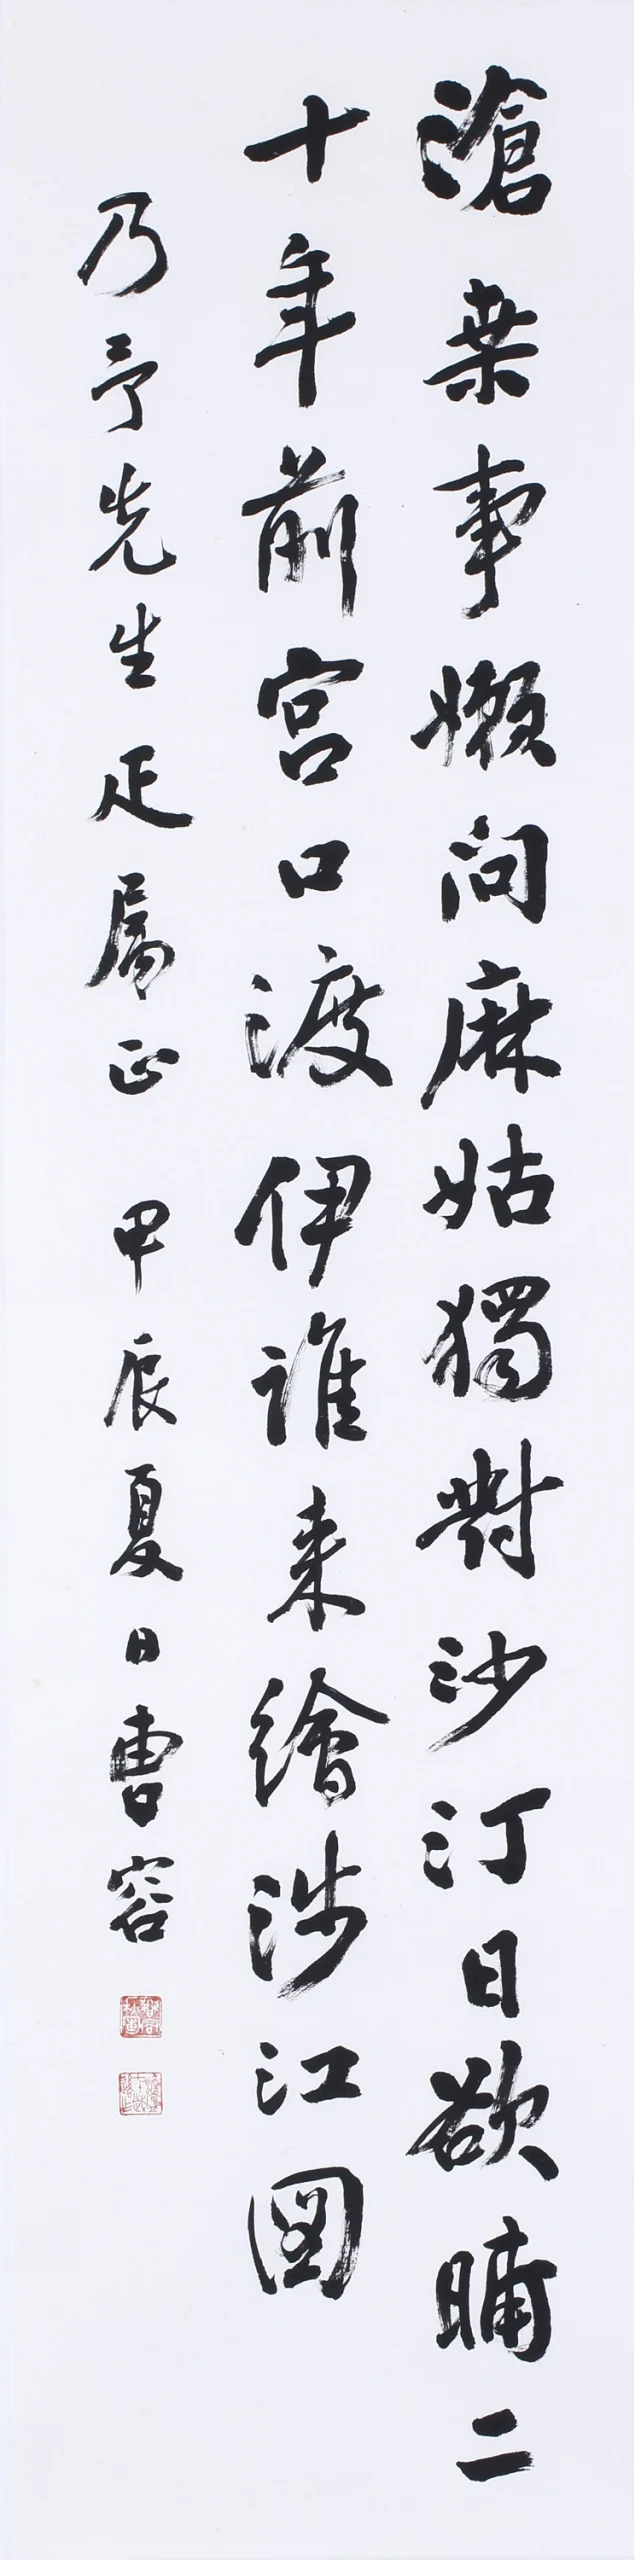 滄桑事懶問麻姑獨對沙汀日欲晡二
十年前宮口渡伊誰來繪涉江圖
乃予先生疋屬正 甲辰夏日曹容